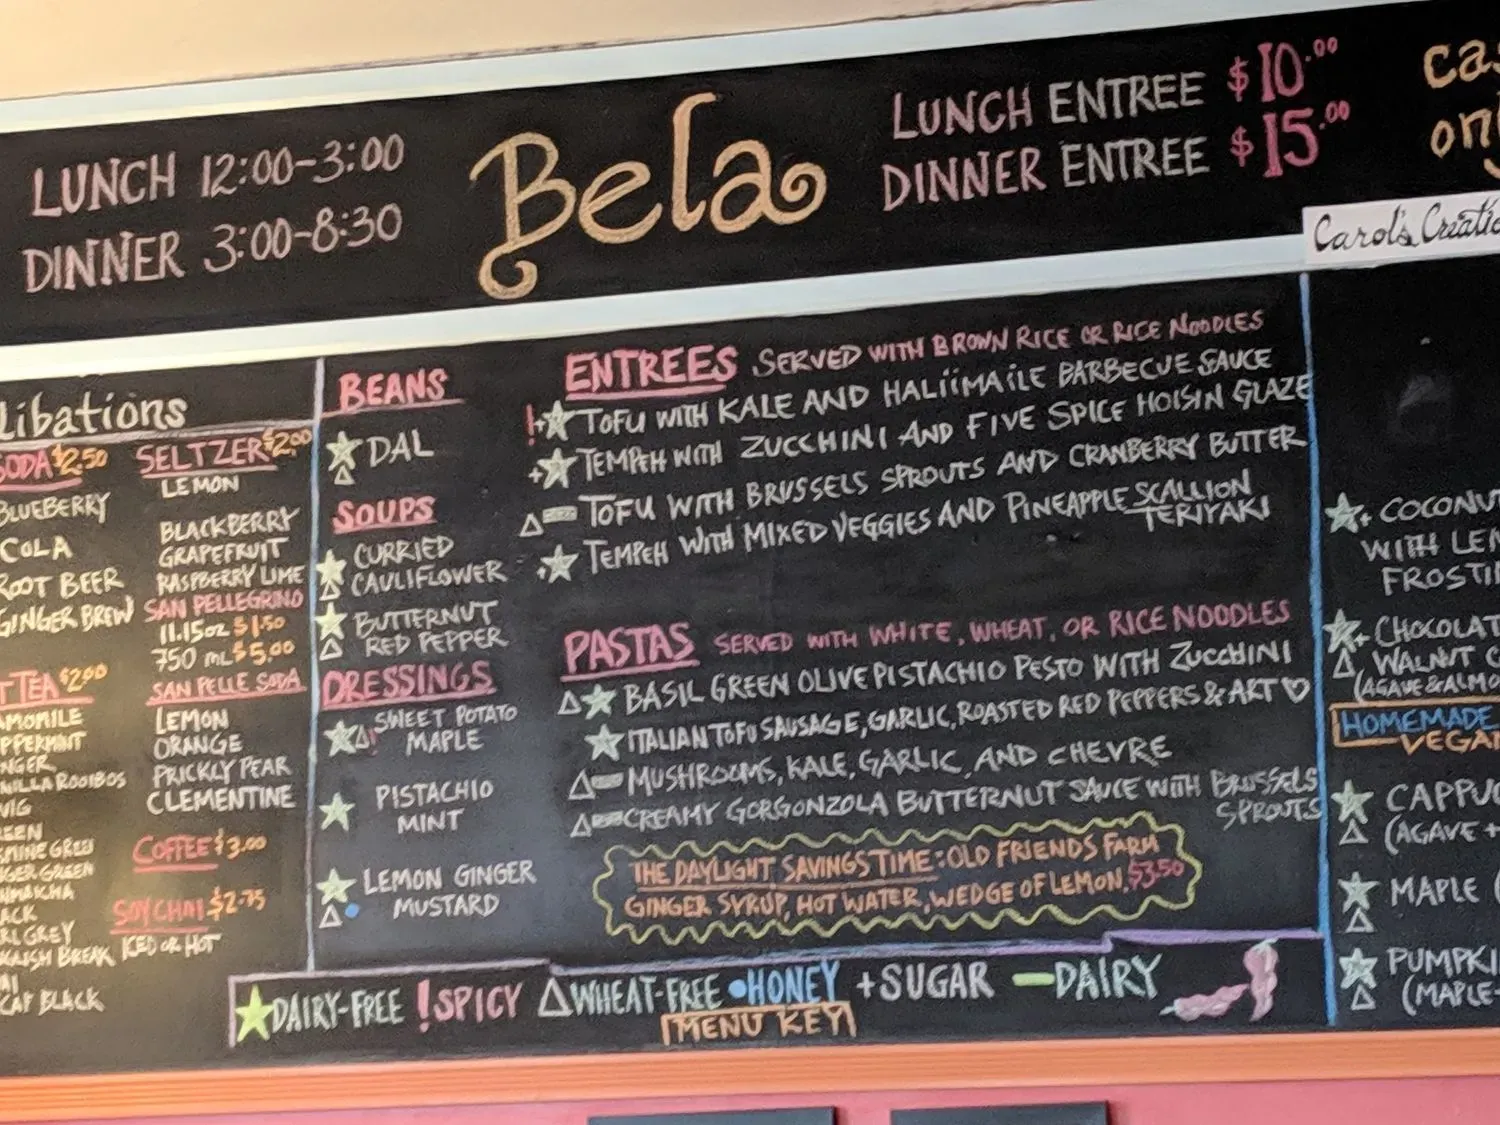 LUNCH 12:00-3:00
DINNER 3:00-8:30
Bela
LUNCH ENTREE $10.00
DINNER ENTREE $15.00
Carol's
libations
SODA $2.50
BLUEBERRY
COLA
ROOT BEER
GINGER BREW
TEA $2.00
GREEN
EARL GREY
BLACK
SELTZER $2.00
LEMON
BLACKBERRY
GRAPEFRUIT
RASPBERRY LIME
SAN PELLEGRINO
11.15oz $1.50
750 mL $5.00
SAN PELLE SODA
LEMON
ORANGE
PRICKLY PEAR
CLEMENTINE
COFFEE $3.00
SOY CHAI $2.75
ICED OR HOT
BEANS
☆△ DAL
SOUPS
☆△ CURRIED
CAULIFLOWER
☆△ BUTTERNUT
RED PEPPER
DRESSINGS
☆△! SWEET POTATO
MAPLE
☆ PISTACHIO
MINT
☆△• LEMON GINGER
MUSTARD
ENTREES SERVED WITH BROWN RICE OR RICE NOODLES
!+☆ TOFU WITH KALE AND HALIIMAILE BARBECUE SAUCE
+☆ TEMPEH WITH ZUCCHINI AND FIVE SPICE HOISIN GLAZE
△— TOFU WITH BRUSSELS SPROUTS AND CRANBERRY BUTTER
+☆ TEMPEH WITH MIXED VEGGIES AND PINEAPPLE SCALLION
TERIYAKI
PASTAS SERVED WITH WHITE, WHEAT, OR RICE NOODLES
△☆ BASIL GREEN OLIVE PISTACHIO PESTO WITH ZUCCHINI
☆ ITALIAN TOFU SAUSAGE, GARLIC, ROASTED RED PEPPERS & ART ♡
△— MUSHROOMS, KALE, GARLIC, AND CHEVRE
△— CREAMY GORGONZOLA BUTTERNUT SAUCE WITH BRUSSELS
SPROUTS
THE DAYLIGHT SAVINGS TIME: OLD FRIENDS FARM
GINGER SYRUP, HOT WATER, WEDGE OF LEMON, $3.50
☆+ COCONUT
WITH
☆+△
WALNUT
HOMEMADE
☆△
(AGAVE +
☆△ MAPLE (
☆△
★DAIRY-FREE !SPICY △WHEAT-FREE •HONEY +SUGAR —DAIRY
MENU KEY